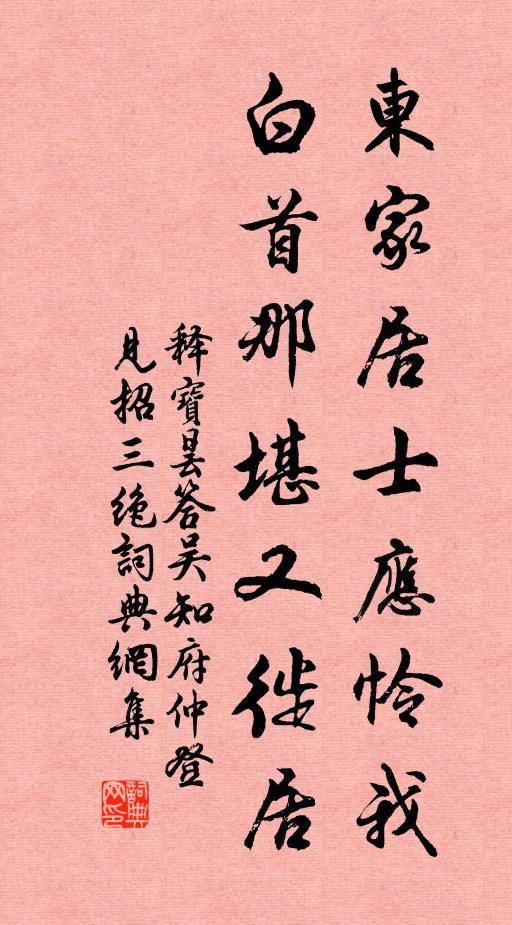 東家居士應怜我
白首那堪又徙居
释寶曇答吴知府仲登
見招三绝詞典網集
詞典网印